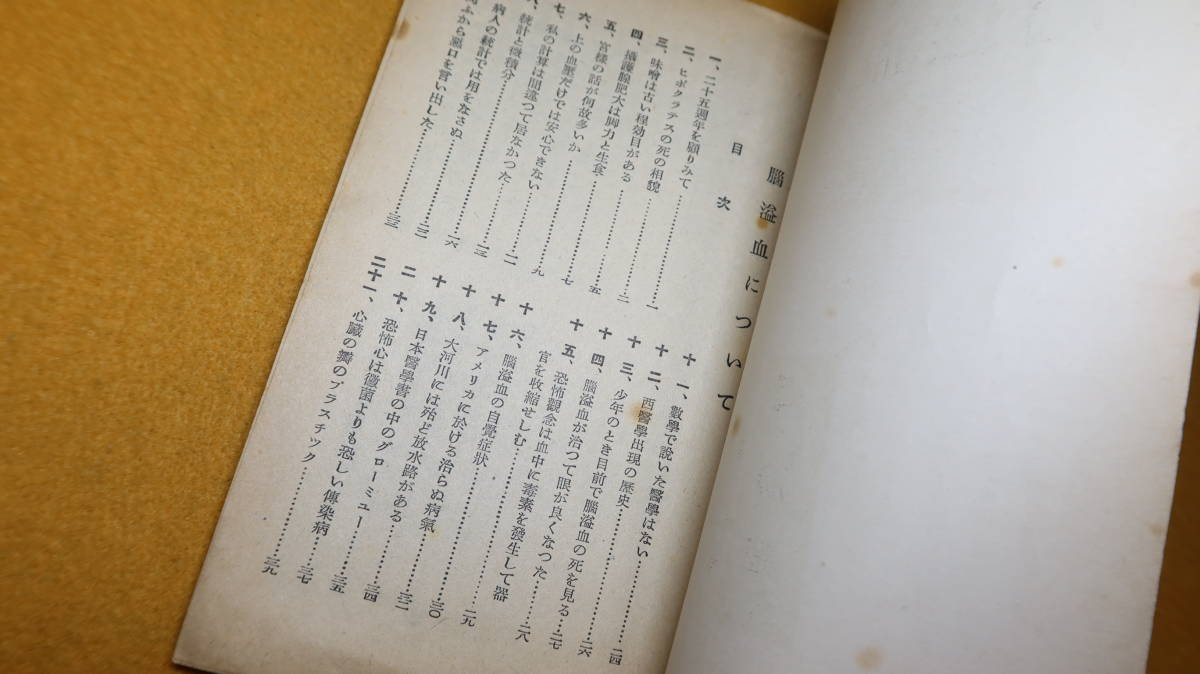 腦溢血について
目次
一、二十五週年を顧りみて………一
二、ヒポクラテスの死の相貌………二
三、味噌は古い程効目がある………五
四、攝護腺肥大は脚力と生食………七
五、宮樣の話が何故多いか………九
六、上の血壓だけでは安心できない………一一
七、私の計算は間違つて居なかつた………一三
八、統計と微積分………一六
病人の統計では用をなさぬ………二二
ふから惡口を言い出した………二三
十一、數學で說いた醫學はない………二四
十二、西醫學出現の歷史………二六
十三、少年のとき目前で腦溢血の死を見る………二七
十四、腦溢血が治つて眼が良くなつた………二八
十五、恐怖觀念は血中に毒素を發生して器
官を收縮せしむ………二九
十六、腦溢血の自覺症狀………三〇
十七、アメリカに於ける治らぬ病氣………三二
十八、大河川には殆ど放水路がある………三四
十九、日本醫學書の中のグローミュー………三五
二十、恐怖心は黴菌よりも恐しい傳染病………三七
二十一、心臟の瓣のプラスチツク………三九